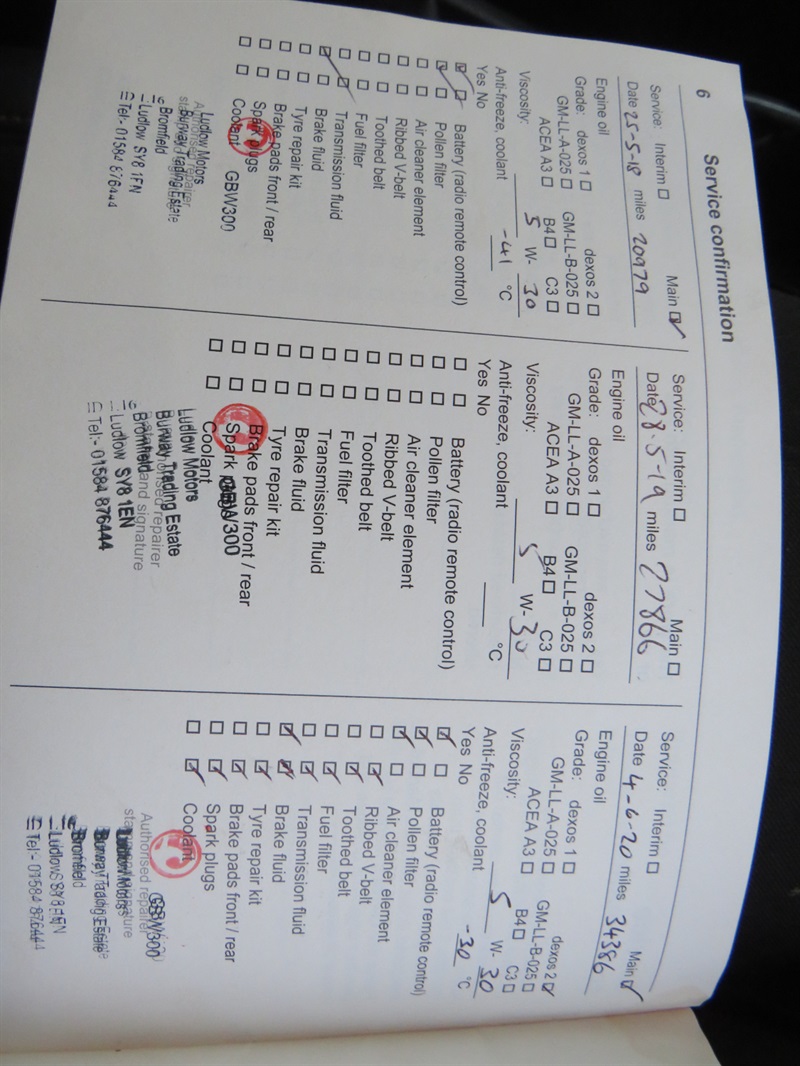 6
Service confirmation
Service: Interim ☐ Main ☑
Date 25-5-18 miles 20979
Engine oil
Grade: dexos 1 ☐ dexos 2 ☐
GM-LL-A-025 ☐ GM-LL-B-025 ☐
ACEA A3 ☐ B4 ☐ C3 ☐
Viscosity: 5 W- 30
Anti-freeze, coolant -41 °C
Yes No
Battery (radio remote control)
Pollen filter
Air cleaner element
Ribbed V-belt
Toothed belt
Fuel filter
Transmission fluid
Brake fluid
Tyre repair kit
Brake pads front / rear
Spark plugs
Coolant GBW300
Ludlow Motors
Burway Trading Estate
Bromfield
Ludlow SY8 1EN
Tel:- 01584 876444
Service: Interim ☐ Main ☐
Date 28.5-19 miles 27866
Engine oil
Grade: dexos 1 ☐ dexos 2 ☐
GM-LL-A-025 ☐ GM-LL-B-025 ☐
ACEA A3 ☐ B4 ☐ C3 ☐
Viscosity: 5 W- 30
Anti-freeze, coolant °C
Yes No
Battery (radio remote control)
Pollen filter
Air cleaner element
Ribbed V-belt
Toothed belt
Fuel filter
Transmission fluid
Brake fluid
Tyre repair kit
Brake pads front / rear
Spark
Coolant
Ludlow Motors
Burway Trading Estate
Bromfield and signature
Ludlow SY8 1EN
Tel:- 01584 876444
Service: Interim ☐ Main ☑
Date 4-6-20 miles 34386
Engine oil
Grade: dexos 1 ☐ dexos 2 ☑
GM-LL-A-025 ☐ GM-LL-B-025 ☐
ACEA A3 ☐ B4 ☐ C3 ☐
Viscosity: 5 W- 30
Anti-freeze, coolant -30 °C
Yes No
Battery (radio remote control)
Pollen filter
Air cleaner element
Ribbed V-belt
Toothed belt
Fuel filter
Transmission fluid
Brake fluid
Tyre repair kit
Brake pads front / rear
Spark plugs
Coolant
GBW300
Authorised repairer
Ludlow Motors
Burway Trading Estate
Bromfield
Ludlow SY8 1EN
Tel:- 01584 876444